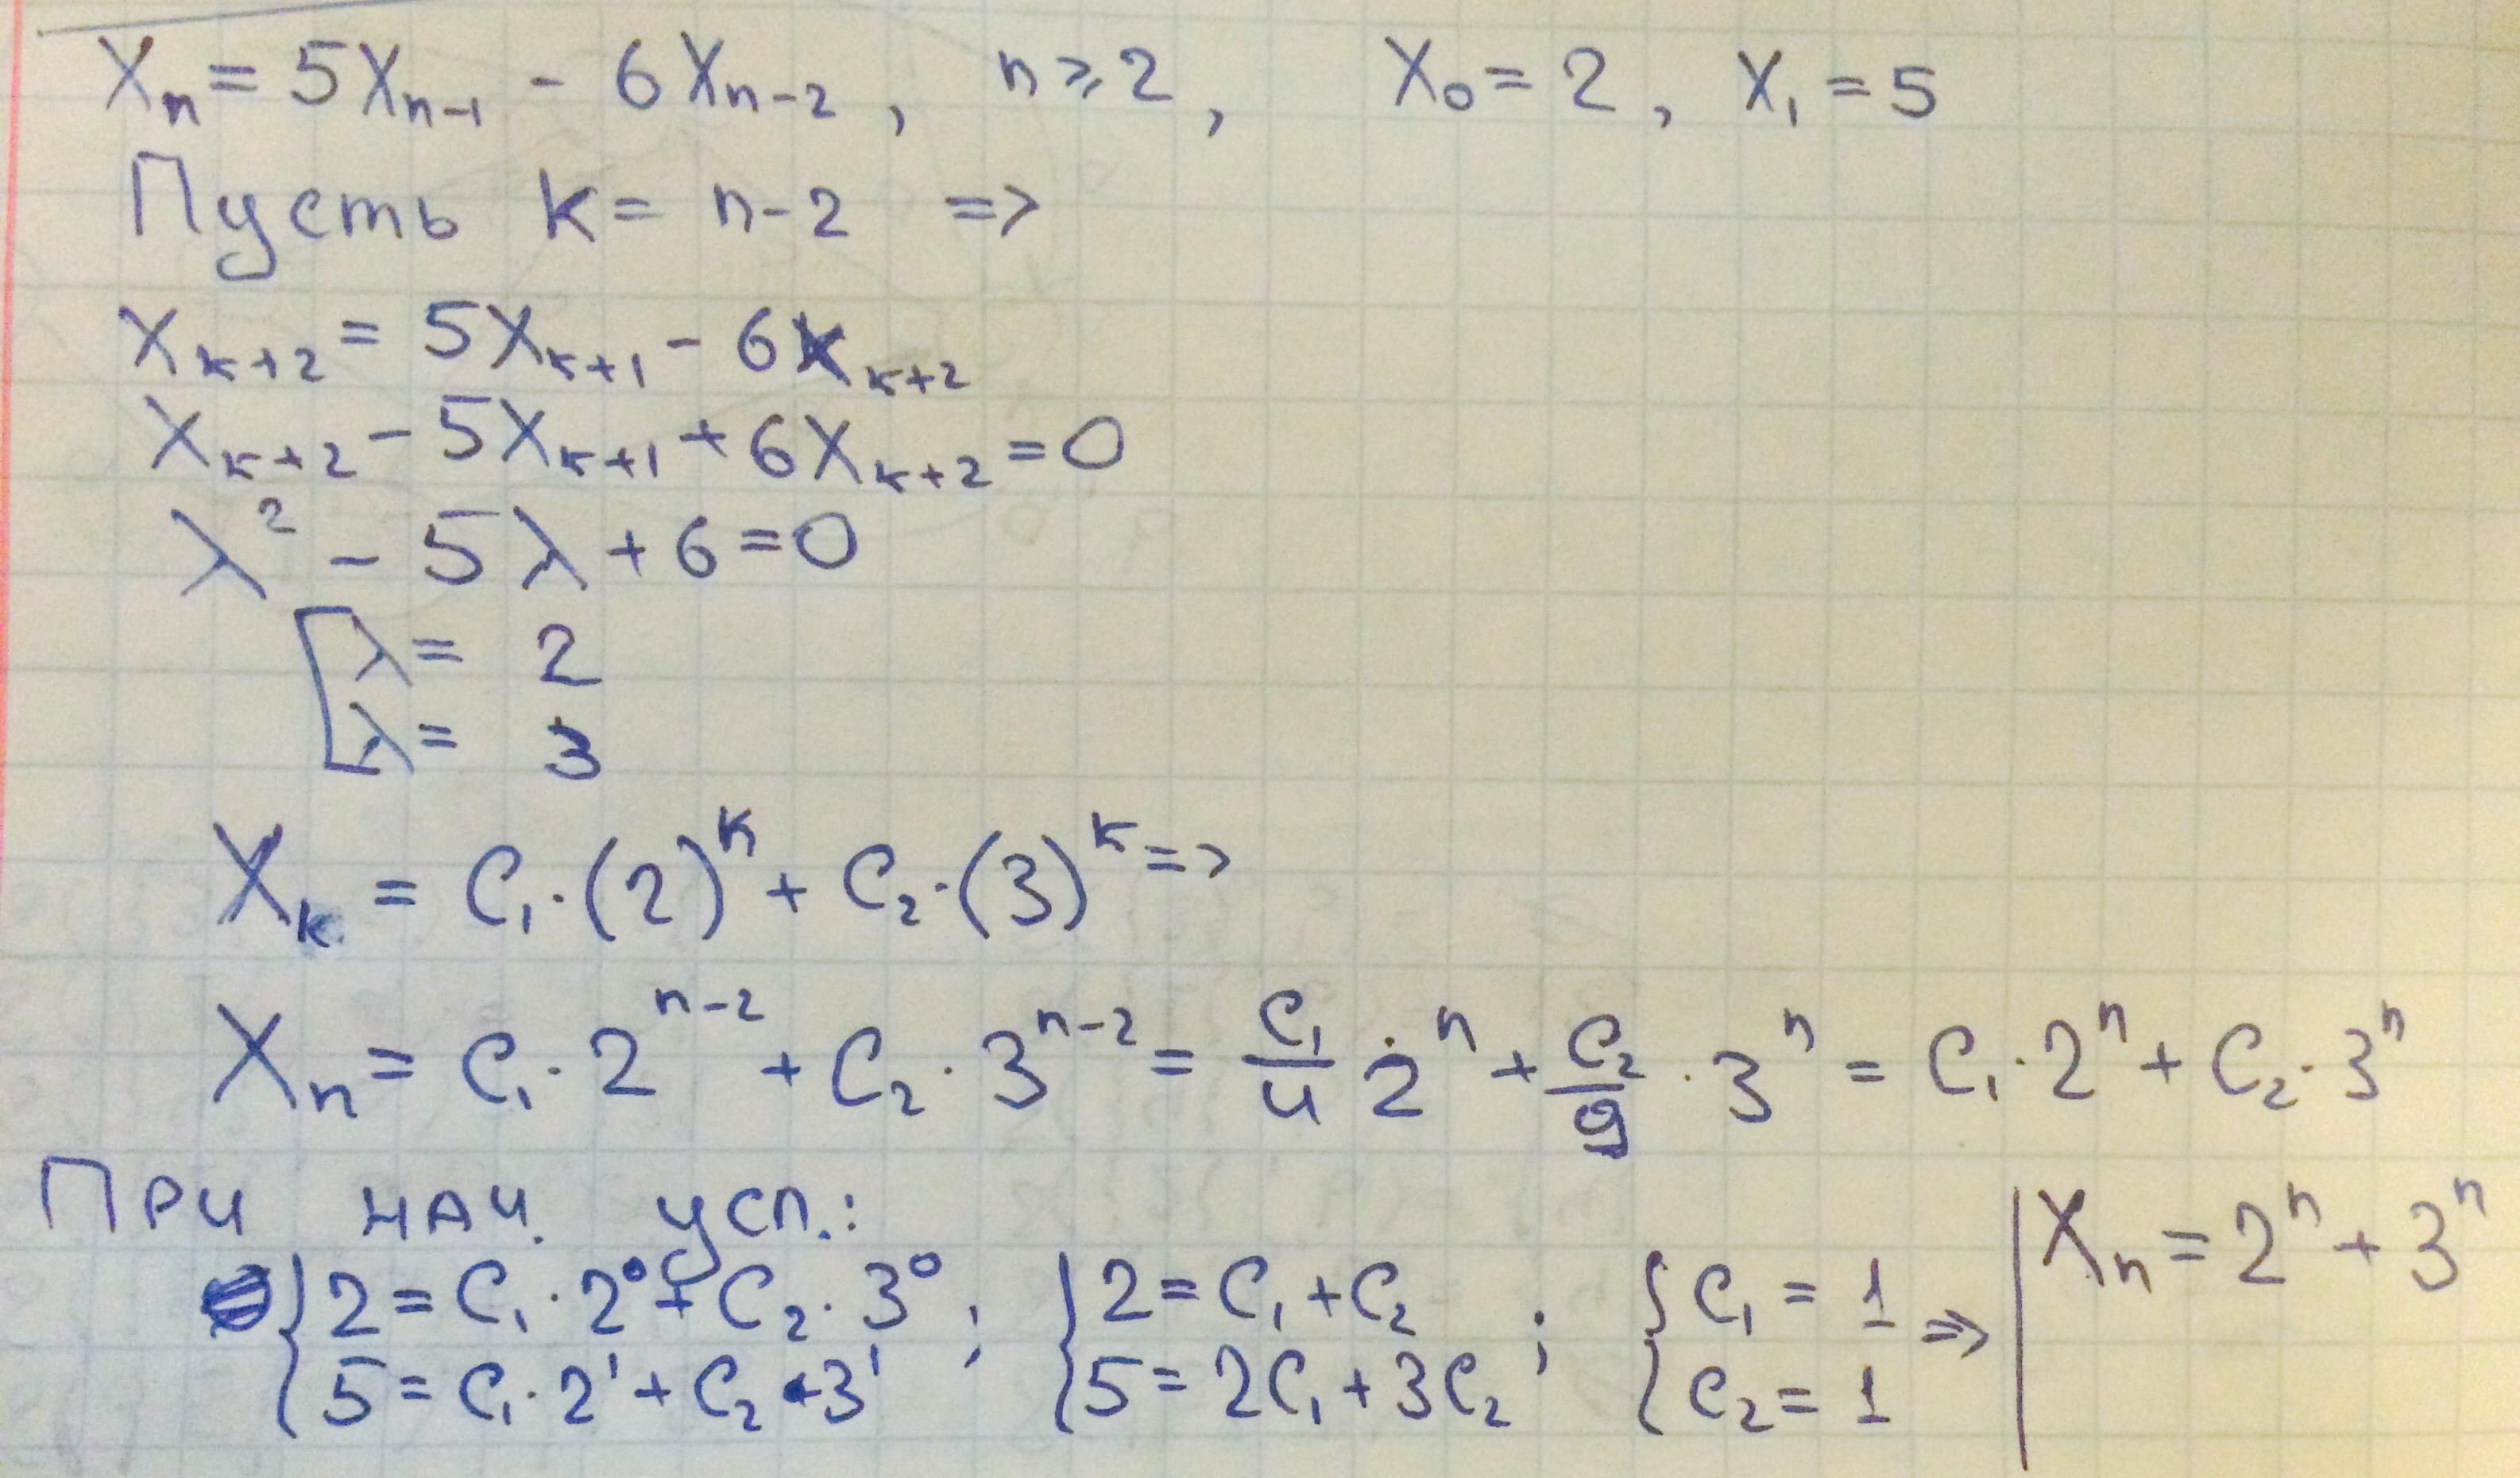 Xₙ = 5Xₙ₋₁ - 6Xₙ₋₂, n ⩾ 2, X₀ = 2, X₁ = 5
Пусть k = n-2 =>
Xₖ₊₂ = 5Xₖ₊₁ - 6Xₖ₊₂
Xₖ₊₂ - 5Xₖ₊₁ + 6Xₖ₊₂ = 0
λ² - 5λ + 6 = 0
[ λ = 2
λ = 3
Xₖ = C₁·(2)ᵏ + C₂·(3)ᵏ =>
Xₙ = C₁·2ⁿ⁻² + C₂·3ⁿ⁻² = C₁/4·2ⁿ + C₂/9·3ⁿ = C₁·2ⁿ + C₂·3ⁿ
При нач. усл.:
{ 2 = C₁·2⁰ + C₂·3⁰ ; { 2 = C₁ + C₂ ; { C₁ = 1 => | Xₙ = 2ⁿ + 3ⁿ
5 = C₁·2¹ + C₂·3¹ 5 = 2C₁ + 3C₂ C₂ = 1